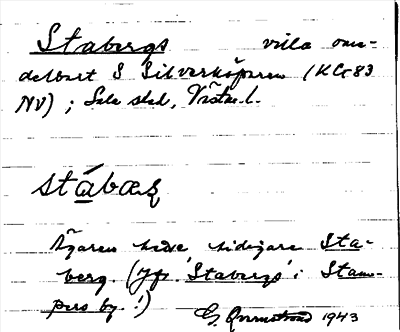 Stabergs villa ome-
delbart S Silverköparen (KC:83
NV); Sala stad, Västm. l.
stábæʂ
Ägaren hette tidigare Sta-
berg. (Jfr 'Stabergs' i Stam-
pers by!)
G. 1943